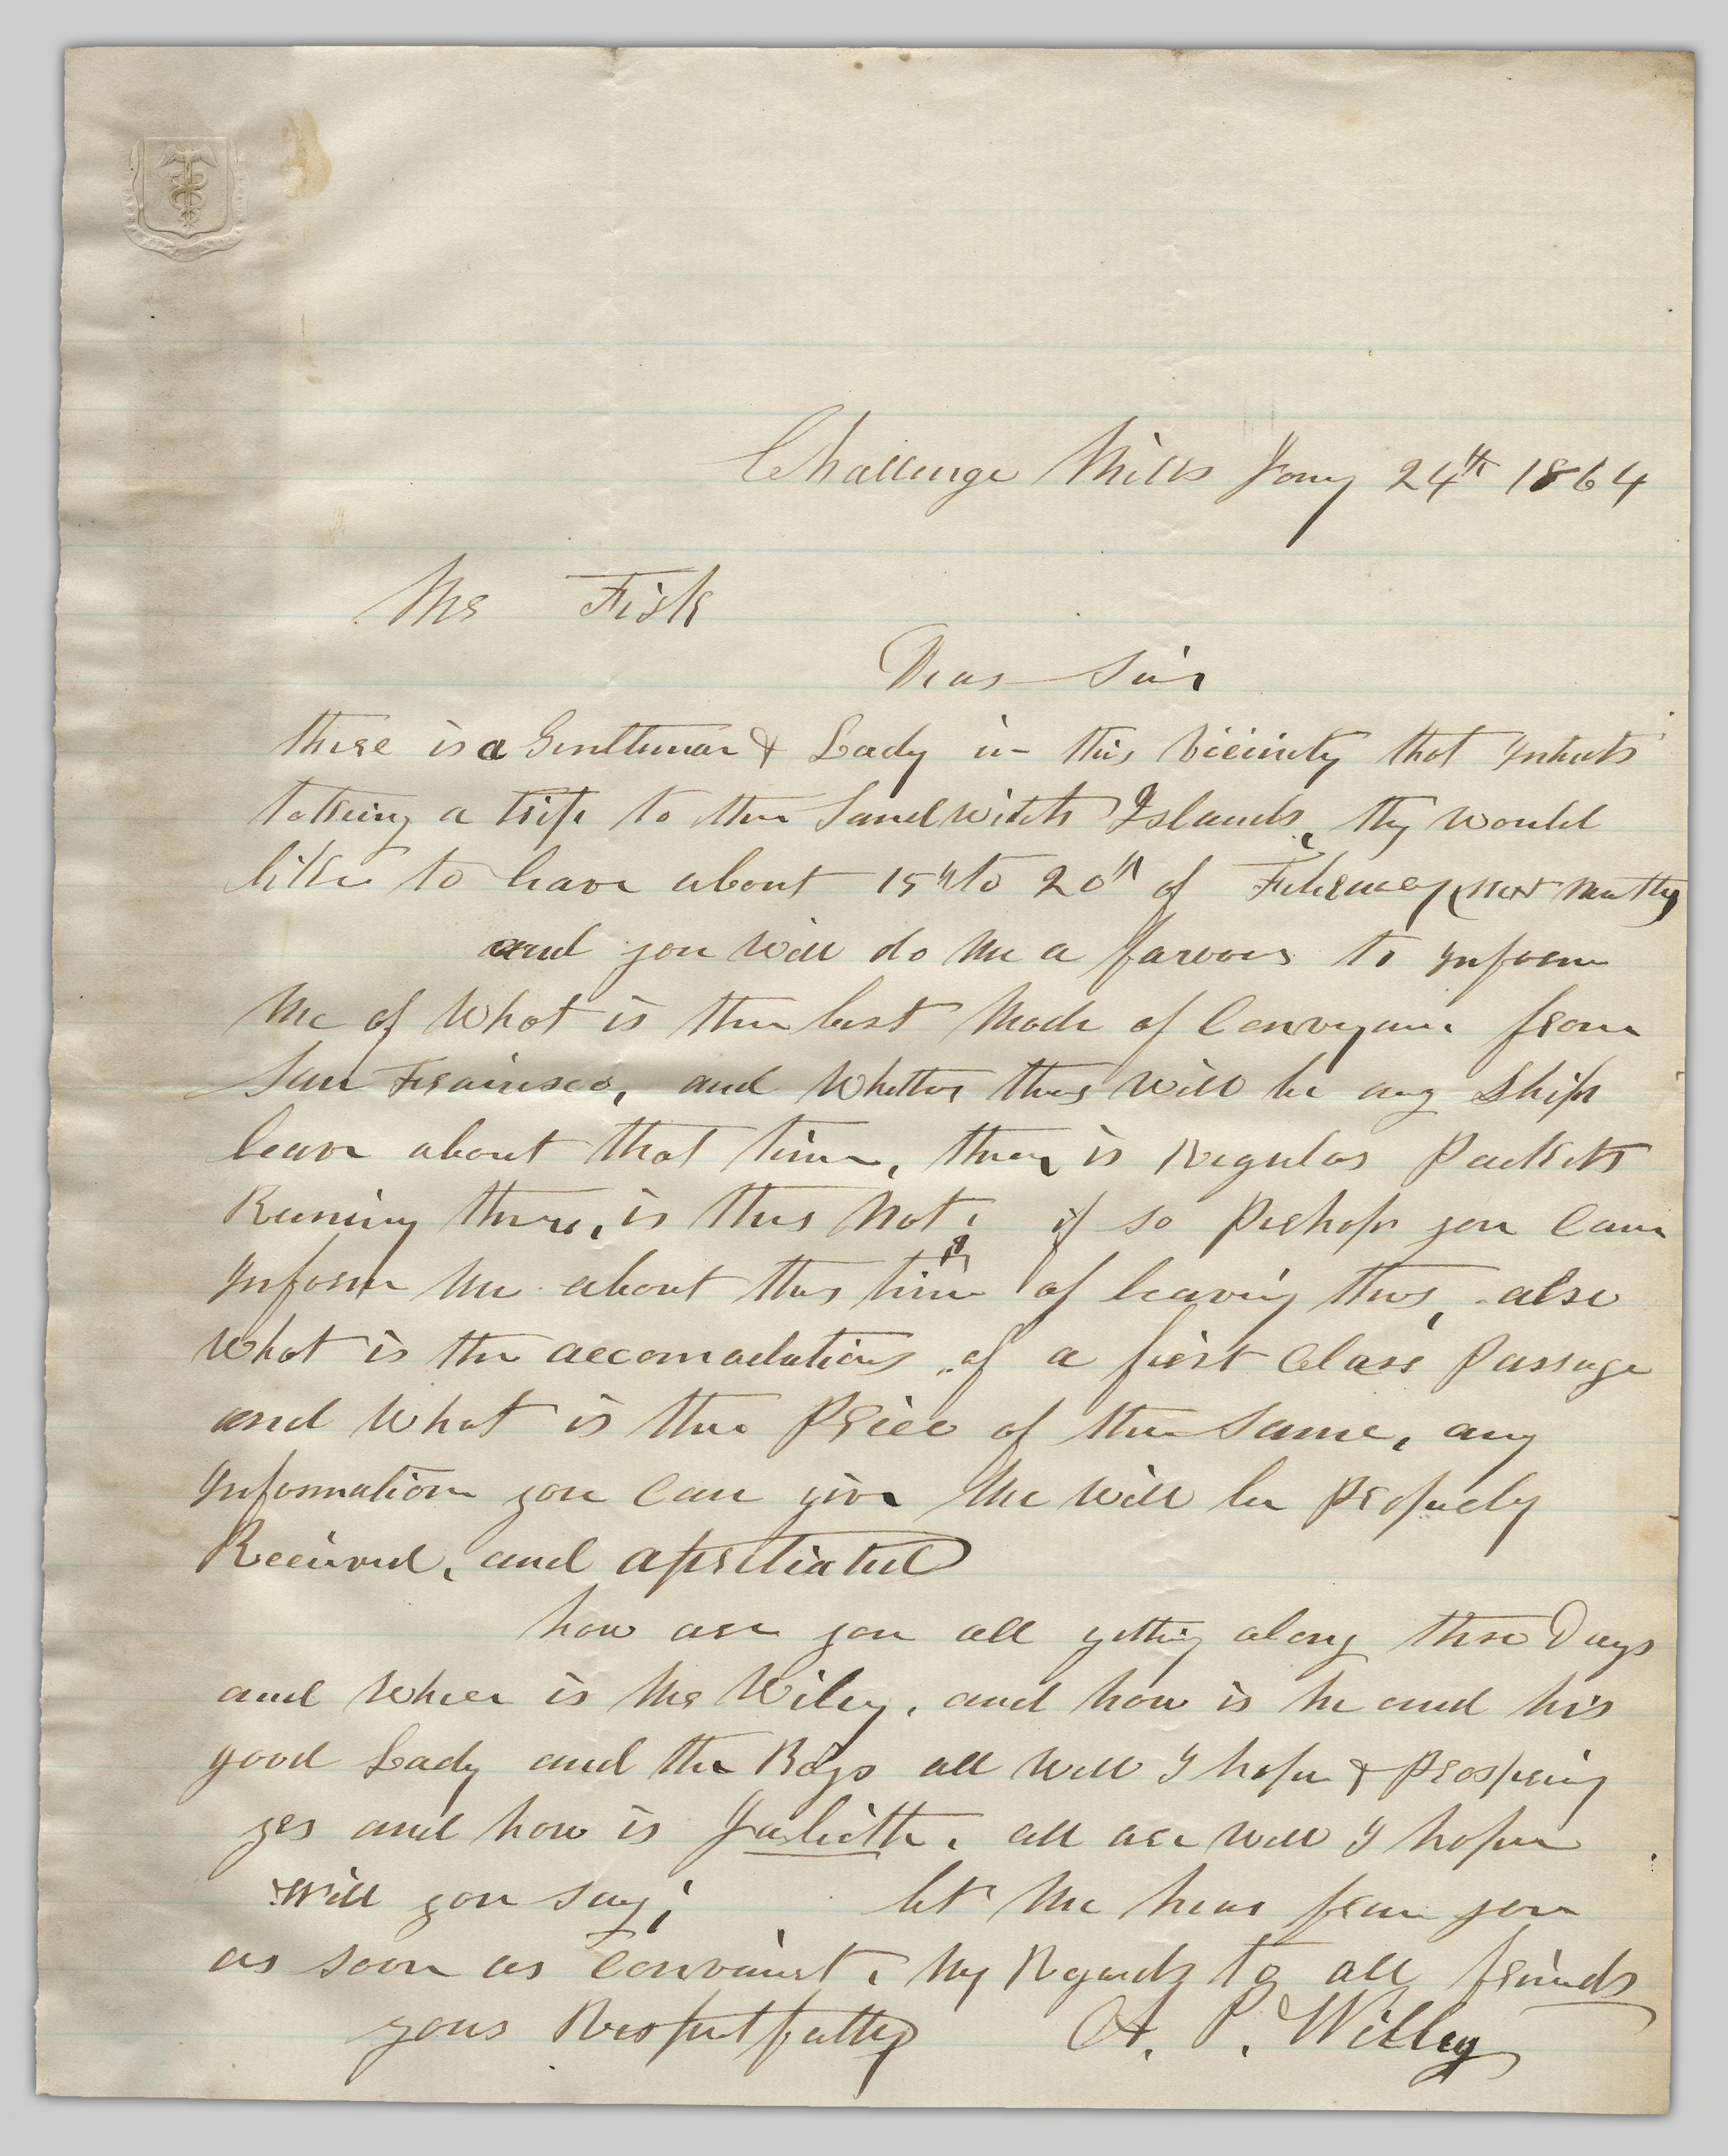 Challenge Mills Jany 24th 1864
Mr Fisk
Dear Sir
there is a Gentleman & Lady in this viccinity that
taking a trip to the Sandwitch Islands, thy would
like to leave about 15th to 20th of February (next month)
and you will do me a favour to inform
me of what is the best mode of Conveyance from
San Francisco, and whether thers will be any Ships
leave about that time, there is Regular Packets
Runing there, is ther not, if so perhaps you Can
inform me about ther time of leaving ther, also
what is the accomodations of a first Class Passage
and what is the Price of the same, any
information you Can give me will be properly
Received, and apretiated
how are you all getting along these Days
and where is Mr Wiley, and how is he and his
good Lady and the Boys all well I hope & prospering
yes and how is Juliette, all are well I hope
will you say; let me hear from you
as soon as Convenient, My Regards to all friends
yours Respectfully A. P. Willey